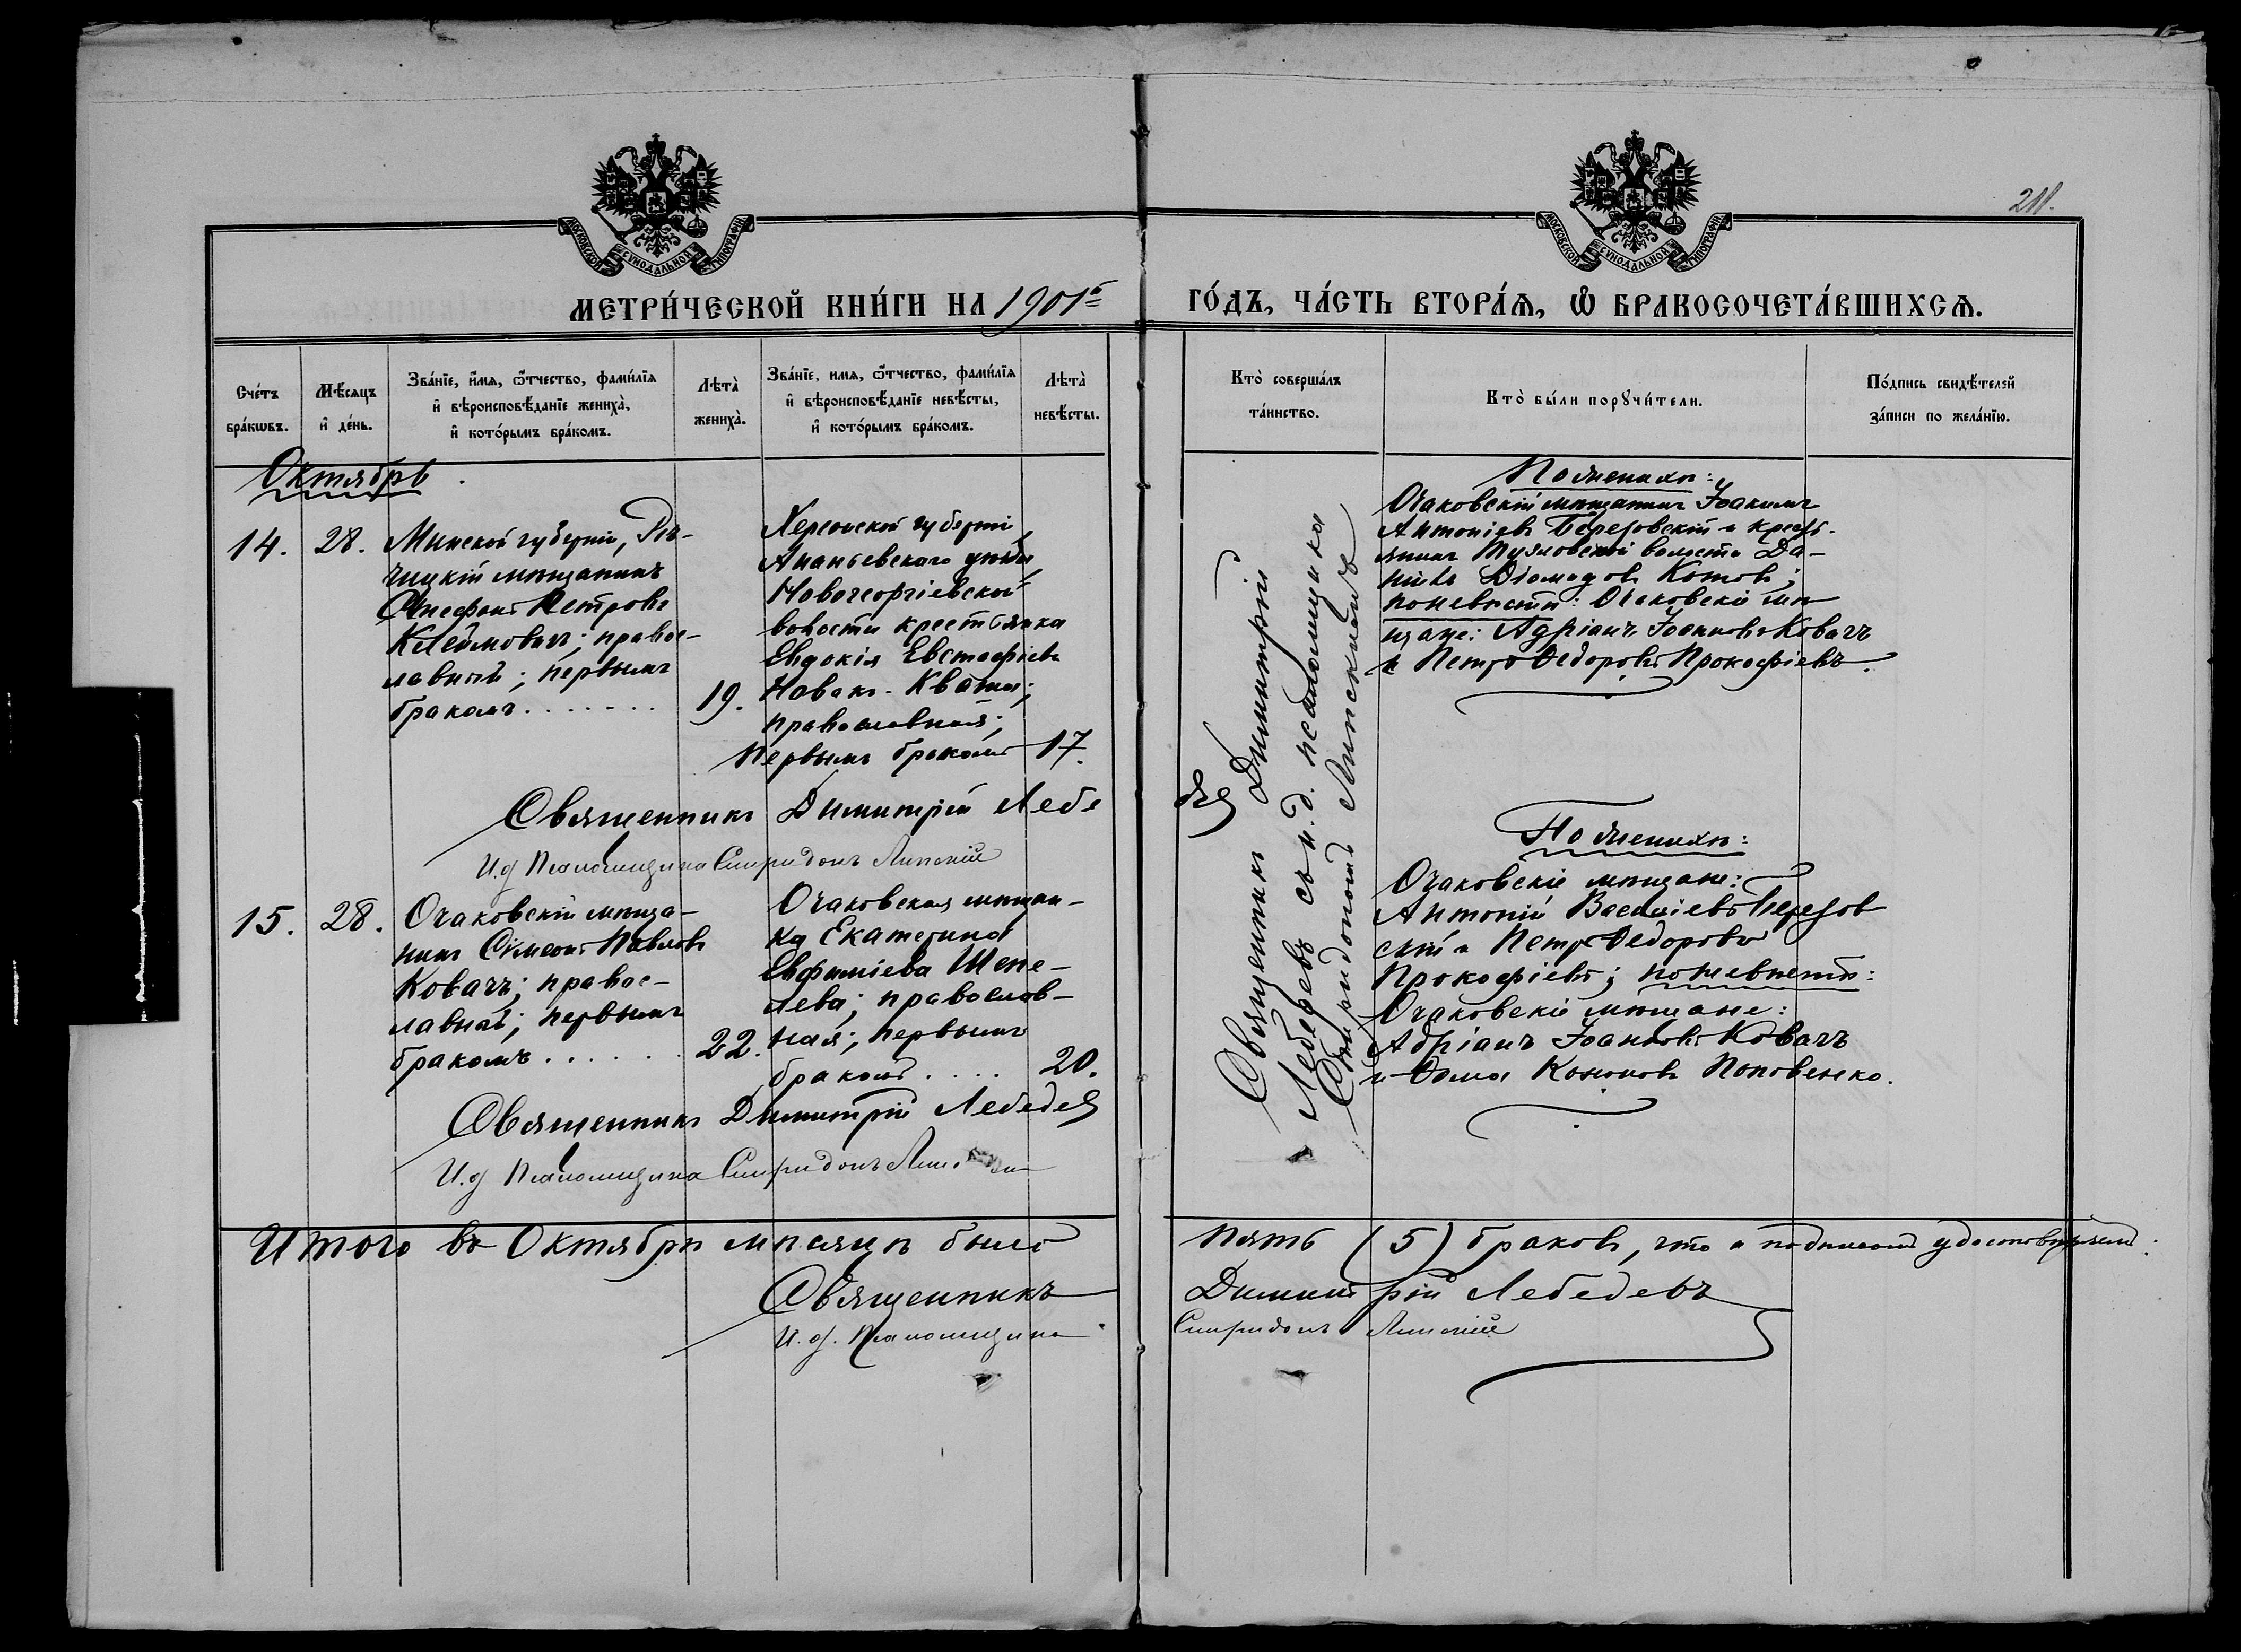 МОСКОВСКОЙ СУНОДАЛЬНОЙ ТИПОГРАФІИ
МОСКОВСКОЙ СУНОДАЛЬНОЙ ТИПОГРАФІИ
211.
МЕТРИ́ЧЕСКОЙ КНИ́ГИ НА 1901й ГО́ДЪ, ЧА́СТЬ ВТОРА́Ѧ, Ѽ БРАКОСОЧЕТА́ВШИХСѦ.
Сче́тъ бра́кѡвъ.
Мѣ́сяцъ и҆ де́нь.
Зва́нїе, и҆́мя, ѻ҆́тчество, фами́лїя и҆ вѣроисповѣ́данїе жениха̀, и҆ кото́рымъ бра́комъ.
Лѣта̀ жениха̀.
Зва́нїе, и҆мя, ѻ҆́тчество, фами́лїя и҆ вѣроисповѣ́данїе невѣ́сты, и҆ кото́рымъ бра́комъ.
Лѣта̀ невѣ́сты.
Кто̀ соверша́лъ та́инство.
Кто̀ бы́ли порꙋчи́тели.
По́дпись свидѣ́телей за́писи по жела́нїю.
Октябрь
14.
28.
Минской губерніи, Рѣ-
чицкій мѣщанинъ
Ксенофонтъ Петровъ
Клеймовичъ; правос-
лавный; первымъ
бракомъ . . . . . . .
19.
Херсонской губерніи,
Ананьевскаго уѣзда,
Новогеоргіевской
волости крестьянка
Евдокія Евстафіева
Новакъ-Кваша;
православная;
первымъ бракомъ
17.
Священникъ Димитрій Лебе
дев
И.д Псаломщика Спиридонъ Липскій
Священникъ Димитрій
Лебедевъ съ и.д. псаломщика
Спиридономъ Липскимъ
По женихѣ:
Очаковскій мѣщанинъ Іоакимъ
Антоніевъ Березовскій и кресть-
янинъ волости Да-
ніилъ Діомидовъ Котовъ;
по невѣстѣ: Очаковскіе мѣ
щане: Адріанъ Іоанновъ Ковачъ
и Петръ Ѳедоровъ Прокофіевъ.
15.
28.
Очаковскій мѣща-
нинъ Сѵмеонъ Павловъ
Ковачъ; правос-
лавный; первымъ
бракомъ . . . . . .
22.
Очаковская мѣщан-
ка Екатерина
Евфиміева Шепе-
лева; православ-
ная; первымъ
бракомъ . . . .
20.
По женихѣ:
Очаковскіе мѣщане:
Антоній Василіевъ Березов
скій и Петръ Ѳедоровъ
Прокофіевъ; по невѣстѣ:
Очаковскіе мѣщане:
Адріанъ Іоанновъ Ковачъ
и Ѳома Кононовъ Поповенко.
Священникъ Димитрій Лебедев
И.д Псаломщика Спиридонъ Липскій
Итого въ Октябрѣ мѣсяцѣ было пять (5) браковъ, что и подписомъ удостовѣряемъ.
Священникъ Димитрій Лебедевъ
И.д. Псаломщика Спиридонъ Липскій